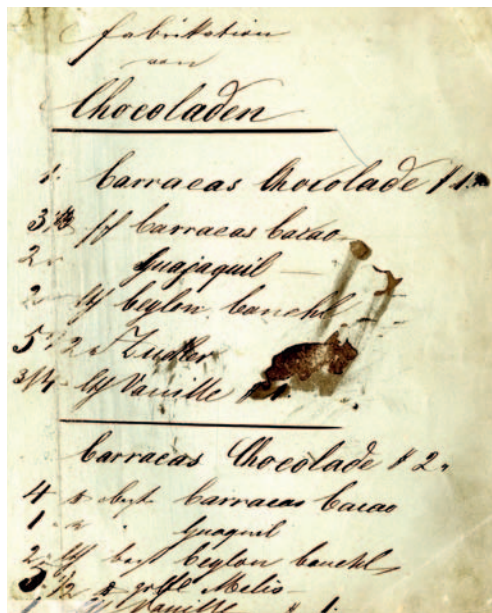 Fabrikation
von
Chocoladen
1. Carracas Chocolade № 1.
3 1/2 Carracas Cacao
2 " Guajaquil
2 " Ceylon Canehl
5 1/2 Zucker
3/4 Vanille № 1.
Carracas Chocolade № 2.
4 Carracas Cacao
1 " Guaquil
2 Ceylon Canehl
5 1/2 Melis
Vanille № 1.